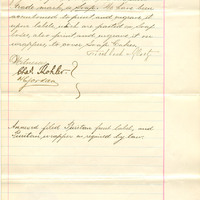 trade mark is Soap. We have been
accustomed to print and engrave it
upon labels, which are pasted on Soap
boxes also print and engrave it on
wrappers to cover Soap Cakes.
Witnesses
Chas. Kohler
Annexed find fifteen fancy labels, and
fifteen wrapper as required by law.